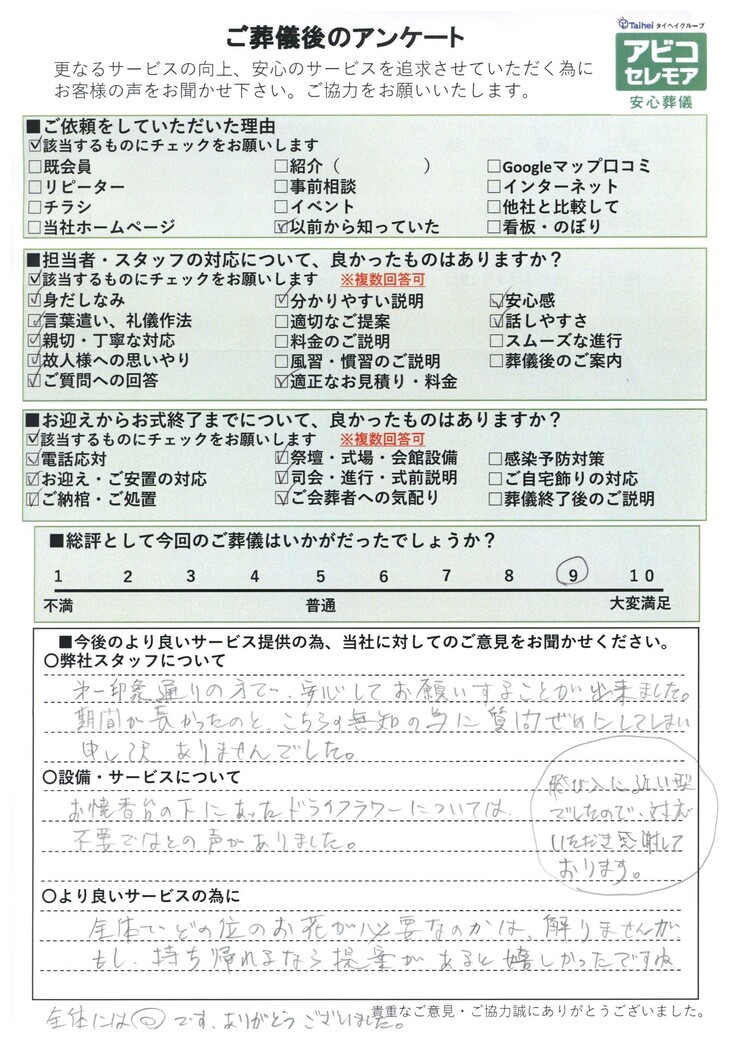 ご葬儀後のアンケート
Taihei タイヘイグループ
アビコ
セレモア
安心葬儀
更なるサービスの向上、安心のサービスを追求させていただく為に
お客様の声をお聞かせ下さい。ご協力をお願いいたします。
■ご依頼をしていただいた理由
☑該当するものにチェックをお願いします
□既会員 □紹介（ ） □Googleマップ口コミ
□リピーター □事前相談 □インターネット
□チラシ □イベント □他社と比較して
□当社ホームページ ☑以前から知っていた □看板・のぼり
■担当者・スタッフの対応について、良かったものはありますか？
☑該当するものにチェックをお願いします ※複数回答可
☑身だしなみ ☑分かりやすい説明 ☑安心感
☑言葉遣い、礼儀作法 □適切なご提案 ☑話しやすさ
☑親切・丁寧な対応 □料金のご説明 □スムーズな進行
☑故人様への思いやり □風習・慣習のご説明 □葬儀後のご案内
☑ご質問への回答 ☑適正なお見積り・料金
■お迎えからお式終了までについて、良かったものはありますか？
☑該当するものにチェックをお願いします ※複数回答可
☑電話応対 ☑祭壇・式場・会館設備 □感染予防対策
☑お迎え・ご安置の対応 ☑司会・進行・式前説明 □ご自宅飾りの対応
☑ご納棺・ご処置 ☑ご会葬者への気配り □葬儀終了後のご説明
■総評として今回のご葬儀はいかがだったでしょうか？
1 2 3 4 5 6 7 8 9 10
不満 普通 大変満足
■今後のより良いサービス提供の為、当社に対してのご意見をお聞かせください。
〇弊社スタッフについて
第一印象通りの方で、安心してお願いすることが出来ました。
期間が長かったのと、こちらの無知の為に質問ぜめにしてしまい
申し訳ありませんでした。
〇設備・サービスについて
お焼香台の下にあったドライフラワーについては、
不要ではとの声がありました。
飛び入に近い型
でしたので、対応
いただき感謝して
おります。
〇より良いサービスの為に
全体でどの位のお花が必要なのかは、解りませんが
もし、持ち帰れるなら提案があると嬉しかったですね
貴重なご意見・ご協力誠にありがとうございました。
全体には◎です、ありがとうございました。